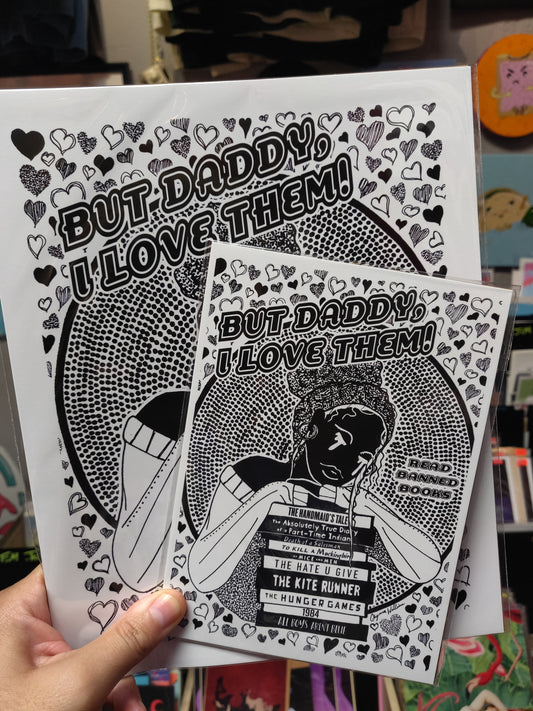 BUT DADDY,
I LOVE THEM!
BUT DADDY,
I LOVE THEM!
READ
BANNED
BOOKS
THE HANDMAID'S TALE
The Absolutely True Diary
of a Part-Time Indian
TO KILL A Mockingbird
OF MICE AND MEN
THE HATE U GIVE
THE KITE RUNNER
THE HUNGER GAMES
1984
ALL BOYS AREN'T BLUE